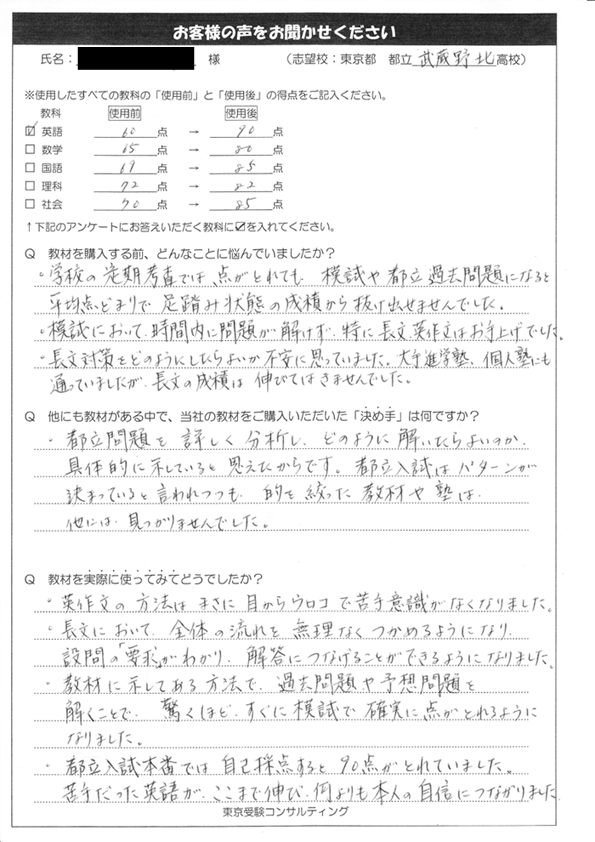 お客様の声をお聞かせください
氏名： 様 （志望校：東京都 都立 武蔵野北高校）
※使用したすべての教科の「使用前」と「使用後」の得点をご記入ください。
教科 使用前 使用後
☑ 英語 60点 → 90点
□ 数学 65点 → 80点
□ 国語 69点 → 85点
□ 理科 72点 → 82点
□ 社会 70点 → 85点
↑下記のアンケートにお答えいただく教科に☑を入れてください。
Q 教材を購入する前、どんなことに悩んでいましたか？
・学校の定期考査では点がとれても、模試や都立過去問題になると
平均点どまりで足踏み状態の成績から抜け出せませんでした。
・模試において、時間内に問題が解けず、特に長文、英作文はお手上げでした。
・長文対策をどのようにしたらよいか不安に思っていました。大手進学塾、個人塾にも
通っていましたが、長文の成績は伸びてはきませんでした。
Q 他にも教材がある中で、当社の教材をご購入いただいた「決め手」は何ですか？
・都立問題を詳しく分析し、どのように解いたらよいのか、
具体的に示していると思えたからです。都立入試はパターンが
決まっていると言われつつも、的を絞った教材や塾は、
他には見つかりませんでした。
Q 教材を実際に使ってみてどうでしたか？
・英作文の方法はまさに目からウロコで苦手意識がなくなりました。
・長文において、全体の流れを無理なくつかめるようになり、
設問の「要求」がわかり、解答につなげることができるようになりました。
・教材に示してある方法で、過去問題や予想問題を
解くことで、驚くほど、すぐに模試で確実に点がとれるように
なりました。
・都立入試本番では自己採点すると90点がとれていました。
苦手だった英語が、ここまで伸び、何よりも本人の自信につながりました
東京受験コンサルティング